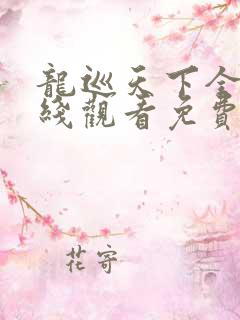 龍巡天下全
綫觀看免費
花寄